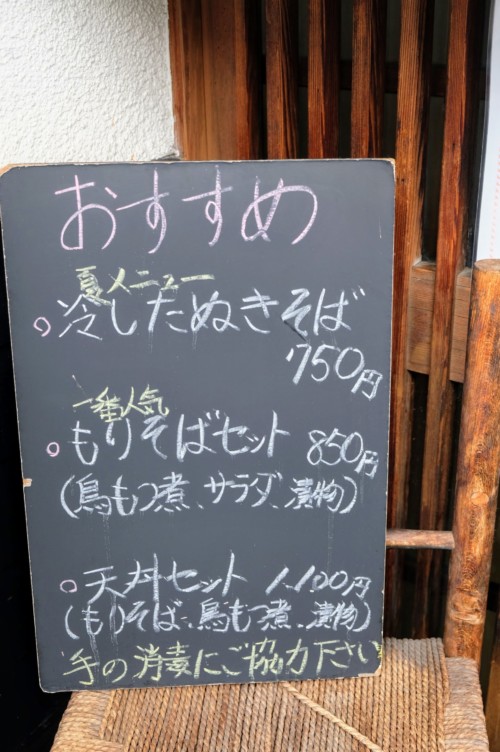 おすすめ
夏メニュー
○冷したぬきそば
750円
一番人気
○もりそばセット 850円
(鳥もつ煮、サラダ、漬物)
○天丼セット 1,100円
(もりそば、鳥もつ煮、漬物)
手の消毒にご協力下さい